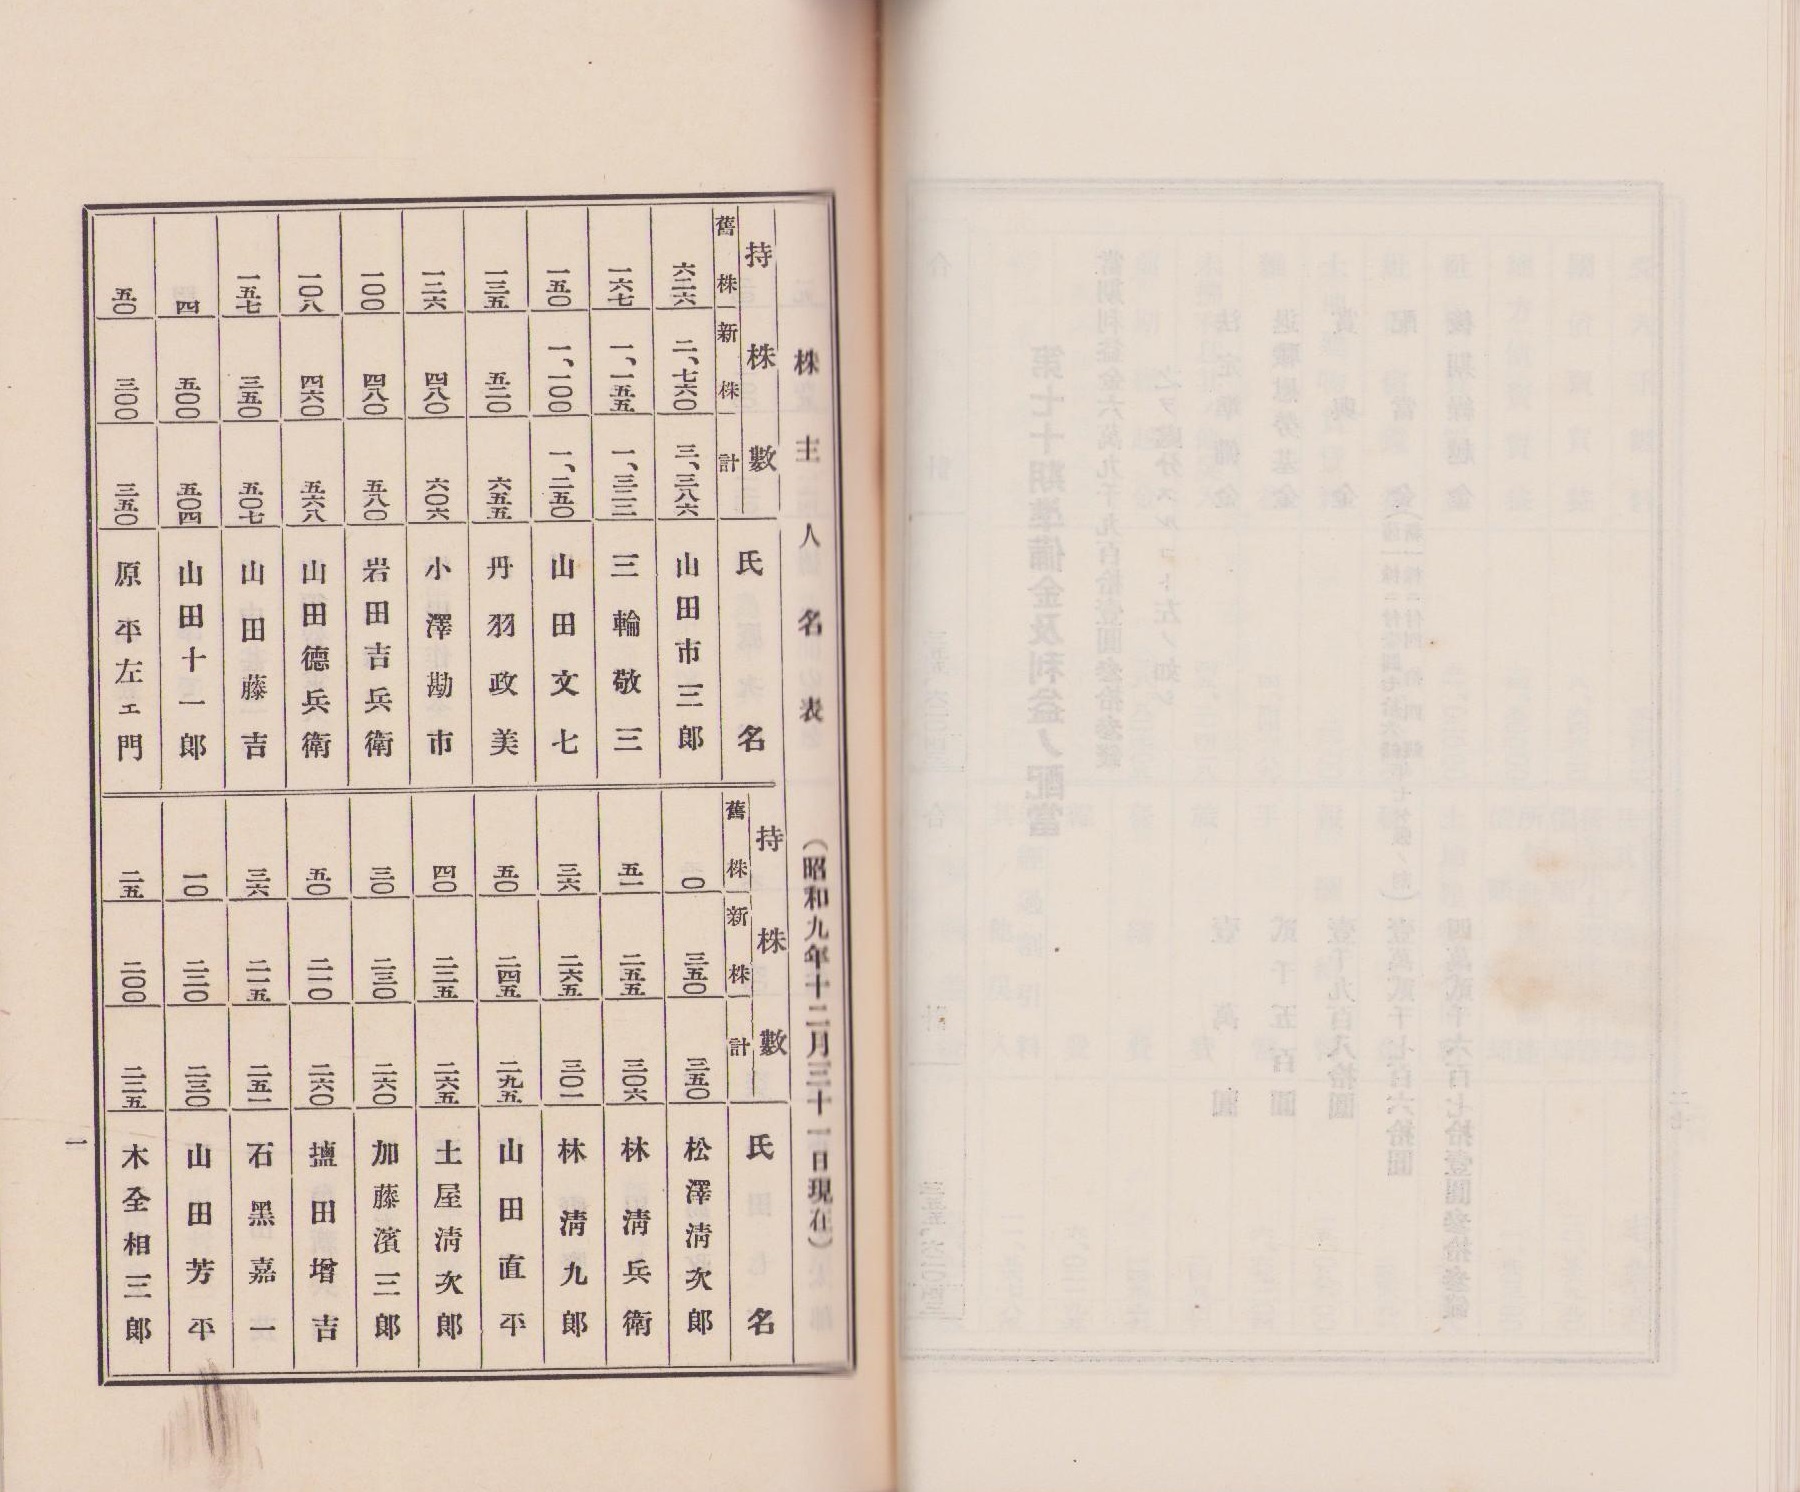 株主人名表 （昭和九年十二月三十一日現在）
持株數 氏名
舊株 新株 計
六二六 二、七六〇 三、三八六 山田市三郎
一六七 一、一五五 一、三二二 三輪敬三
一五〇 一、一〇〇 一、二五〇 山田文七
一三五 五二〇 六五五 丹羽政美
一二六 四八〇 六〇六 小澤勘市
一〇〇 四八〇 五八〇 岩田吉兵衛
一〇八 四六〇 五六八 山田德兵衛
一五七 三五〇 五〇七 山田藤吉
四 五〇〇 五〇四 山田十一郎
五〇 三〇〇 三五〇 原平左エ門
持株數 氏名
舊株 新株 計
〇 三五〇 三五〇 松澤淸次郎
五一 二五五 三〇六 林淸兵衛
三六 二六五 三〇一 林淸九郎
五〇 二四五 二九五 山田直平
四〇 二二五 二六五 土屋淸次郎
三〇 二三〇 二六〇 加藤濱三郎
五〇 二一〇 二六〇 增吉
三六 二一五 二五一 石黑嘉一
一〇 二二〇 二三〇 山田芳平
二五 二〇〇 二二五 木全相三郎
一